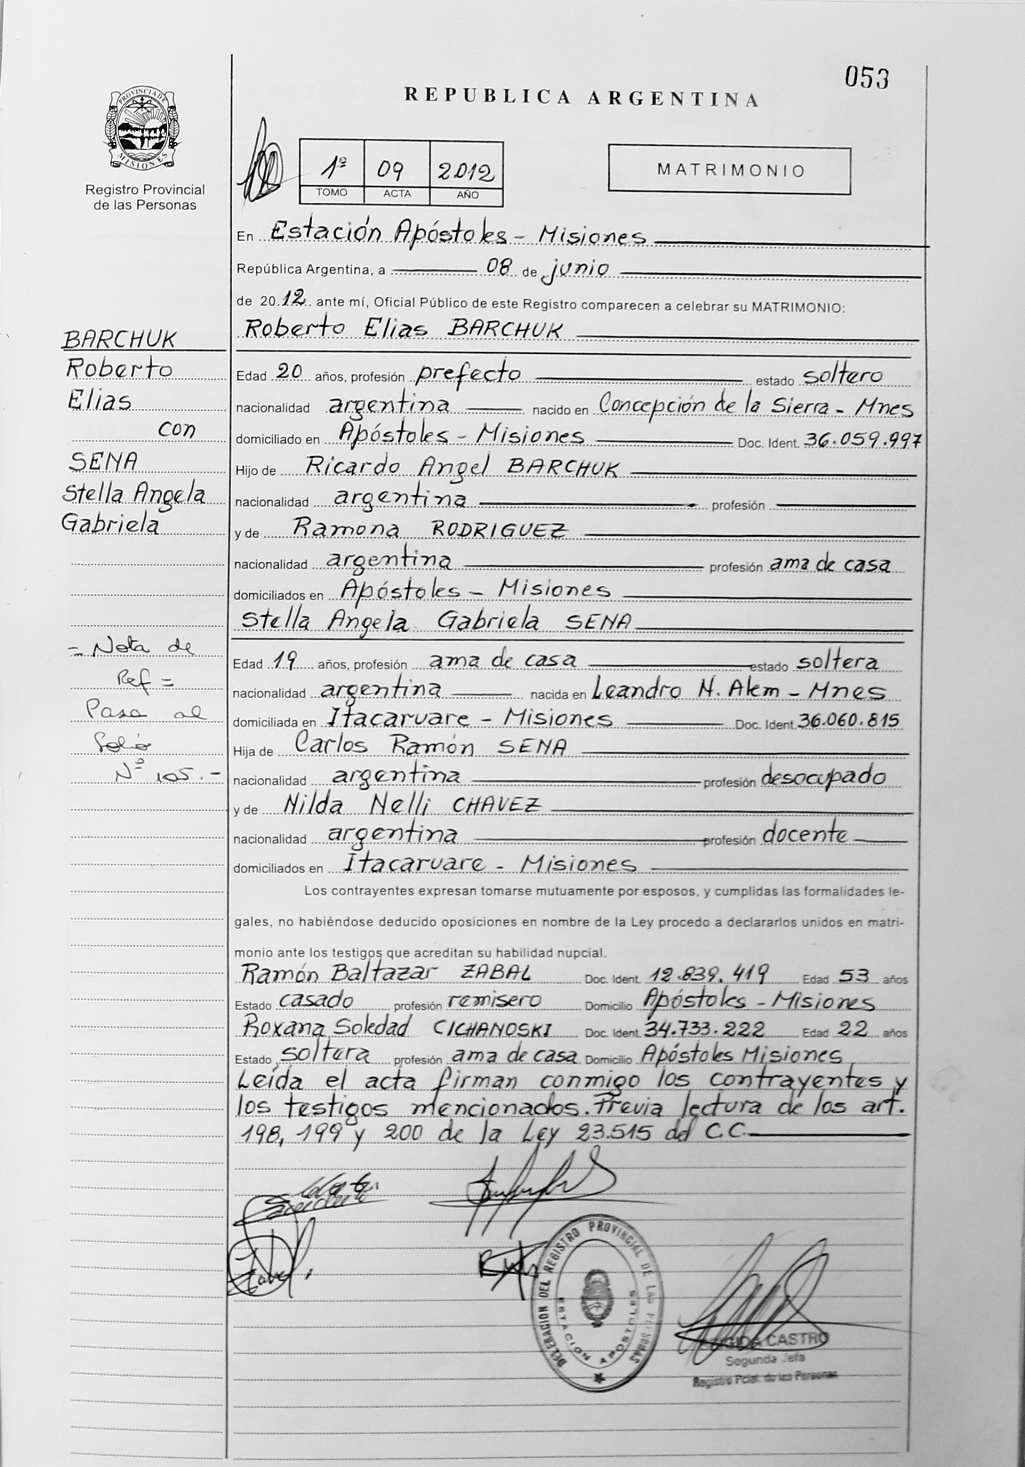 053
REPUBLICA ARGENTINA
PROVINCIA DE MISIONES
Registro Provincial
de las Personas
1º 09 2012
TOMO ACTA AÑO
MATRIMONIO
En Estación Apóstoles - Misiones
República Argentina, a 08 de junio
de 2012 ante mí, Oficial Público de este Registro comparecen a celebrar su MATRIMONIO:
Roberto Elias BARCHUK
BARCHUK
Roberto
Elias
con
SENA
Stella Angela
Gabriela
Edad 20 años, profesión prefecto estado soltero
nacionalidad argentina nacido en Concepción de la Sierra - Mnes
domiciliado en Apóstoles - Misiones Doc. Ident. 36.059.997
Hijo de Ricardo Angel BARCHUK
nacionalidad argentina profesión
y de Ramona RODRIGUEZ
nacionalidad argentina profesión ama de casa
domiciliados en Apóstoles - Misiones
Stella Angela Gabriela SENA
- Nota de
Ref =
Pasa al
Folio
Nº 105.-
Edad 19 años, profesión ama de casa estado soltera
nacionalidad argentina nacida en Leandro N. Alem - Mnes
domiciliada en Itacaruare - Misiones Doc. Ident. 36.060.815
Hija de Carlos Ramón SENA
nacionalidad argentina profesión desocupado
y de Nilda Nelli CHAVEZ
nacionalidad argentina profesión docente
domiciliados en Itacaruare - Misiones
Los contrayentes expresan tomarse mutuamente por esposos, y cumplidas las formalidades le-
gales, no habiéndose deducido oposiciones en nombre de la Ley procedo a declararlos unidos en matri-
monio ante los testigos que acreditan su habilidad nupcial.
Ramón Baltazar ZABAL Doc. Ident. 12.839.419 Edad 53 años
Estado casado profesión remisero Domicilio Apóstoles - Misiones
Roxana Soledad CICHANOSKI Doc. Ident. 34.733.222 Edad 22 años
Estado soltera profesión ama de casa Domicilio Apóstoles Misiones
Leída el acta firman conmigo los contrayentes y
los testigos mencionados. Previa lectura de los art.
198, 199 y 200 de la Ley 23.515 del C.C.
DELEGACION DEL REGISTRO PROVINCIAL DE LAS PERSONAS
ESTACION APOSTOLES
CASTRO
Segunda Jefa
Registro Pcial. de las Personas